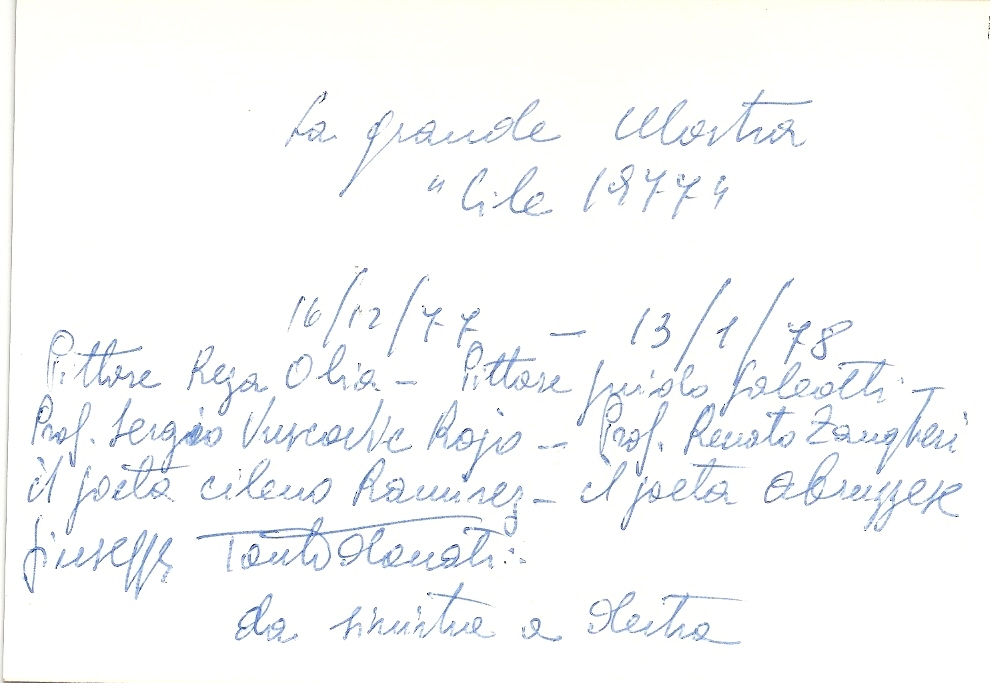 La grande Mostra
"Cile 1977"
16/12/77 – 13/1/78
Pittore Reza Olia – Pittore Guido Galeotti –
Prof. Sergio Vuscovic Rojo – Prof. Renato Zangheri
il poeta cileno Ramirez – il poeta abruzzese
Giuseppe Tontodonati:
da sinistra a destra